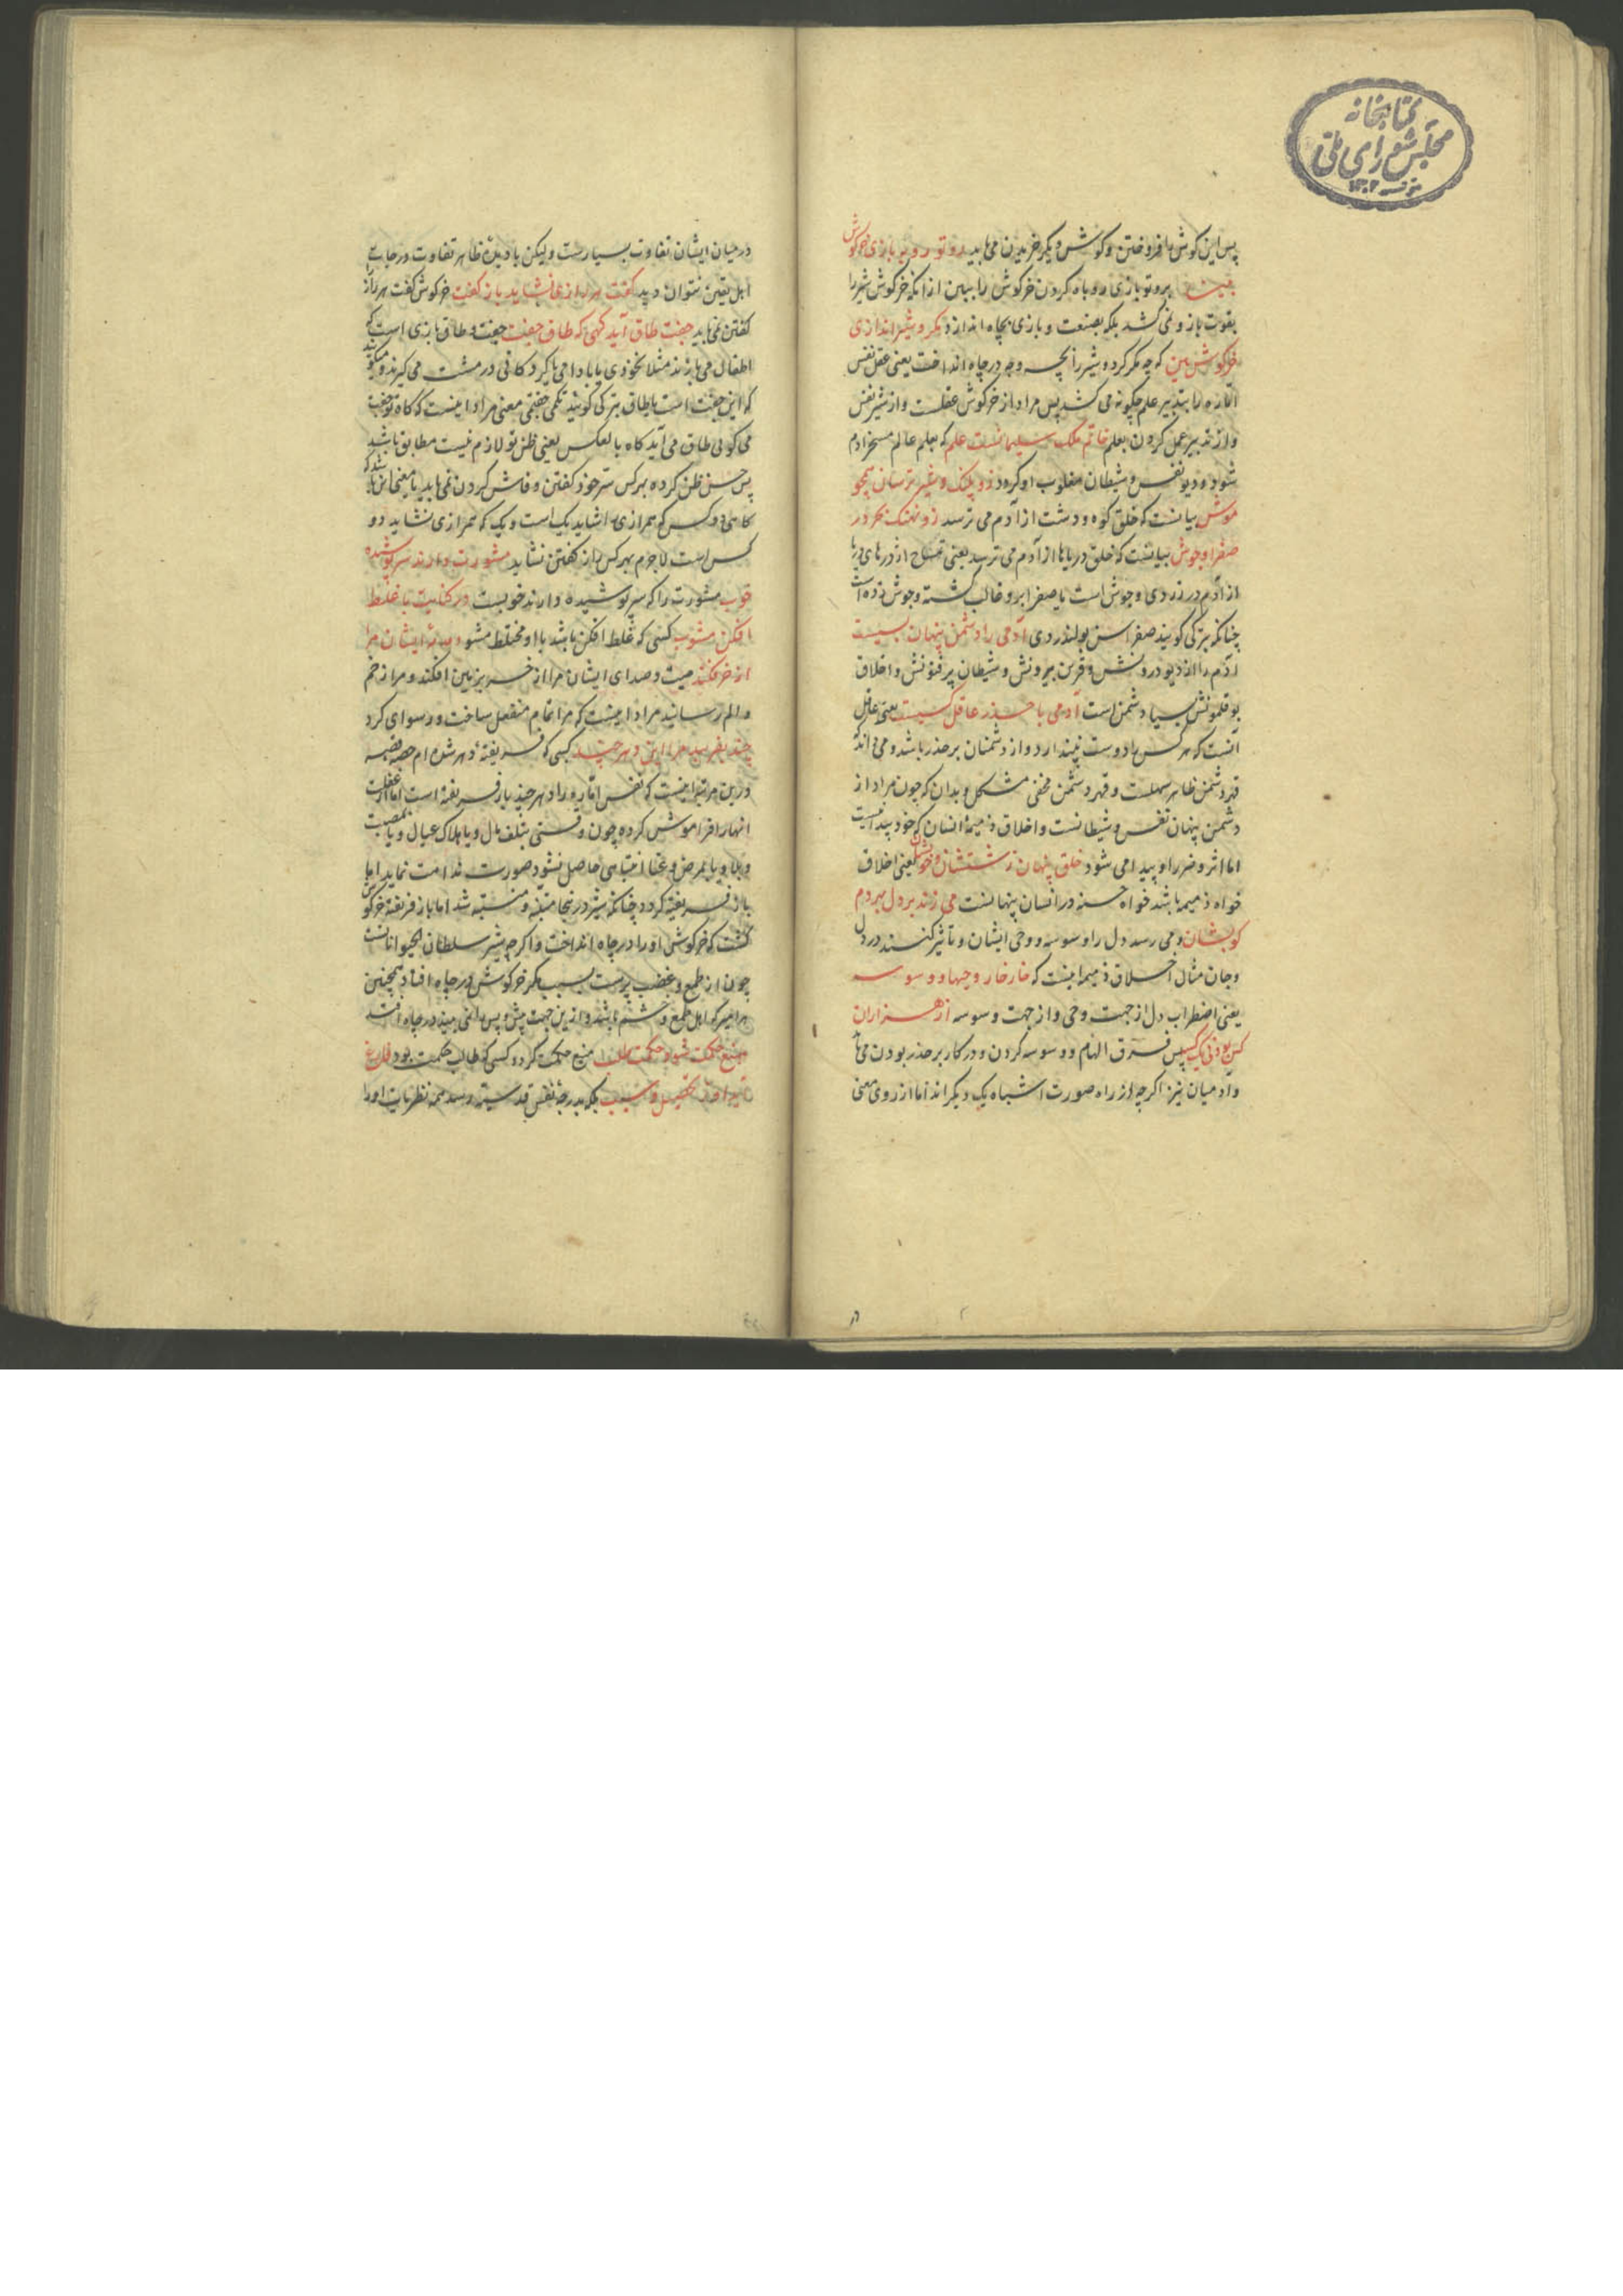 کتابخانه
مجلس شورای ملی
پس این کوش بافروختن و کوش دیگر خریدن می باید رو تو روبه بازی خرکوش
ببین برو تو بازی روباه کردن خرکوش را ببین از انکه خرکوش شیر را
بقوت بازو نمی کشد بلکه بصنعت و بازی بچاه اندازد مکر و شیر اندازی
خرکوش بین که چه مکر کرد و شیر را بچه وجه در چاه انداخت یعنی عقل نفس
اماره را بتدبیر علم چکونه می کشد پس مراد از خرکوش عقلست و از شیر نفس
و از تدبیر عمل کردن بعلم خاتم ملک سلیمانست علم که بعلم عالم مسخر ادم
شود و دیو نفس و شیطان مغلوب او کردد زو پلنک و شیر ترسان همچو
موش بیانست که خلق کوه و دشت از آدم می ترسد زو نهنک بحر در
صفرا و جوش بیانست که خلق دریاها از آدم می ترسد یعنی تمساح اژدرهای دریا
از آدم در زردی و جوش است یا صفرا برو غالب کشته و جوش زده است
چنانکه بترکی کویند صفراسن بولندردی آدمی را دشمن پنهان بسیست
ادم را از دیو درونش و قرین بیرونش و شیطان پر فنونش و اخلاق
بوقلمونش بسیار دشمن است آدمی با حذر عاقل کسیست یعنی عاقل
آنست که هر کس را دوست نپندارد و از دشمنان بر حذر باشد و می داند که
قهر دشمن ظاهر سهلست و قهر دشمن مخفی مشکل و بدان که چون مراد از
دشمن پنهان نفس و شیطانست و اخلاق ذمیمهٔ انسان که خود پیدا نیست
اما اثر و ضرر او پیدا می شود خلق پنهان زشتشان و خوبشان یعنی اخلاق
خواه ذمیمه باشد خواه حسنه در انسان پنهانست می زند بر دل بهر دم
کوبشان و می رسد دل را وسوسه و وحی ایشان و تأثیر کنند در دل
و جان مثال اخلاق ذمیمه اینست که خار خار وحیها و وسوسه
یعنی اضطراب دل از جهت وحی و از جهت وسوسه از هزاران
کس بود نی یک کسه پس فرق الهام و وسوسه کردن و در کار بر حذر بودن می باید
و آدمیان نیز اکرچه از راه صورت اشباه یک دیکراند اما از روی معنی
در میان ایشان تفاوت بسیارست ولیکن با دیدهٔ ظاهر تفاوت درجات
اهل یقین نتوان دید کفت هر رازی نشاید باز کفت خرکوش کفت هر راز
کفتن نمی باید جفت طاق آید کهی که طاق جفت جفت و طاق بازی است که
اطفال می بازند مثلا نخودی یا بادامی یا کردکانی در مشت می کیرند و میکویند
که این جفت است یا طاق بترکی کویند تکمی جفتمی معنی مراد اینست که کاه تو جفت
می کویی طاق می آید کاه بالعکس یعنی ظن تو لازم نیست مطابق باشد
پس حسن ظن کرده بهر کس سر خود کفتن و فاش کردن نمی باید یا معنی این باشد که
کاهی دو کس که همرازی را شاید یک است و یک که همرازی نشاید دو
کس است لاجرم بهر کس راز کفتن نشاید مشورت دارند سرپوشیده
خوب مشورت را که سرپوشیده دارند خوبست در کنایت با غلط
افکن مشوب کسی که غلط افکن باشد با او مختلط مشو دمدمهٔ ایشان مرا
از خر فکند صیت و صدای ایشان مرا از خر بزمین افکند و مرا زخم
و الم رسانید مراد اینست که مرا تمام منفعل ساخت و رسوای کرد
چند بفریبد مرا این دهر چند کسی که فریفتهٔ دهر شد
درین مرتبه اینست که نفس اماره را دهر چند بار فریفته است اما از غفلت
انها را فراموش کرده چون وقتی بتلف مال و یا هلاک عیال و یا بمصیبت
و بلا و یا بمرض و عنا انتباهی حاصل نشود صورت ندامت نماید اما
باز فریفته کردد چنانکه شیر درینجا متنبه شد اما باز فریفتهٔ خرکوش
کشت که خرکوشی او را در چاه انداخت و اکرچه شیر سلطان الحیواناتست
چون از طمع و غضب پرست بسبب مکر خرکوش در چاه افتاد همچنین
هر امیر که اهل طمع و خشم باشد و ازین جهت پیش و پس را نمی بیند در چاه افتد
منبع حکمت شود حکمت طلب منبع حکمت کردد کسی که طالب حکمت بود فارغ
آید او ز تحصیل و سبب بلکه بدرجهٔ نفس قدسیه رسد همه نظریات او را